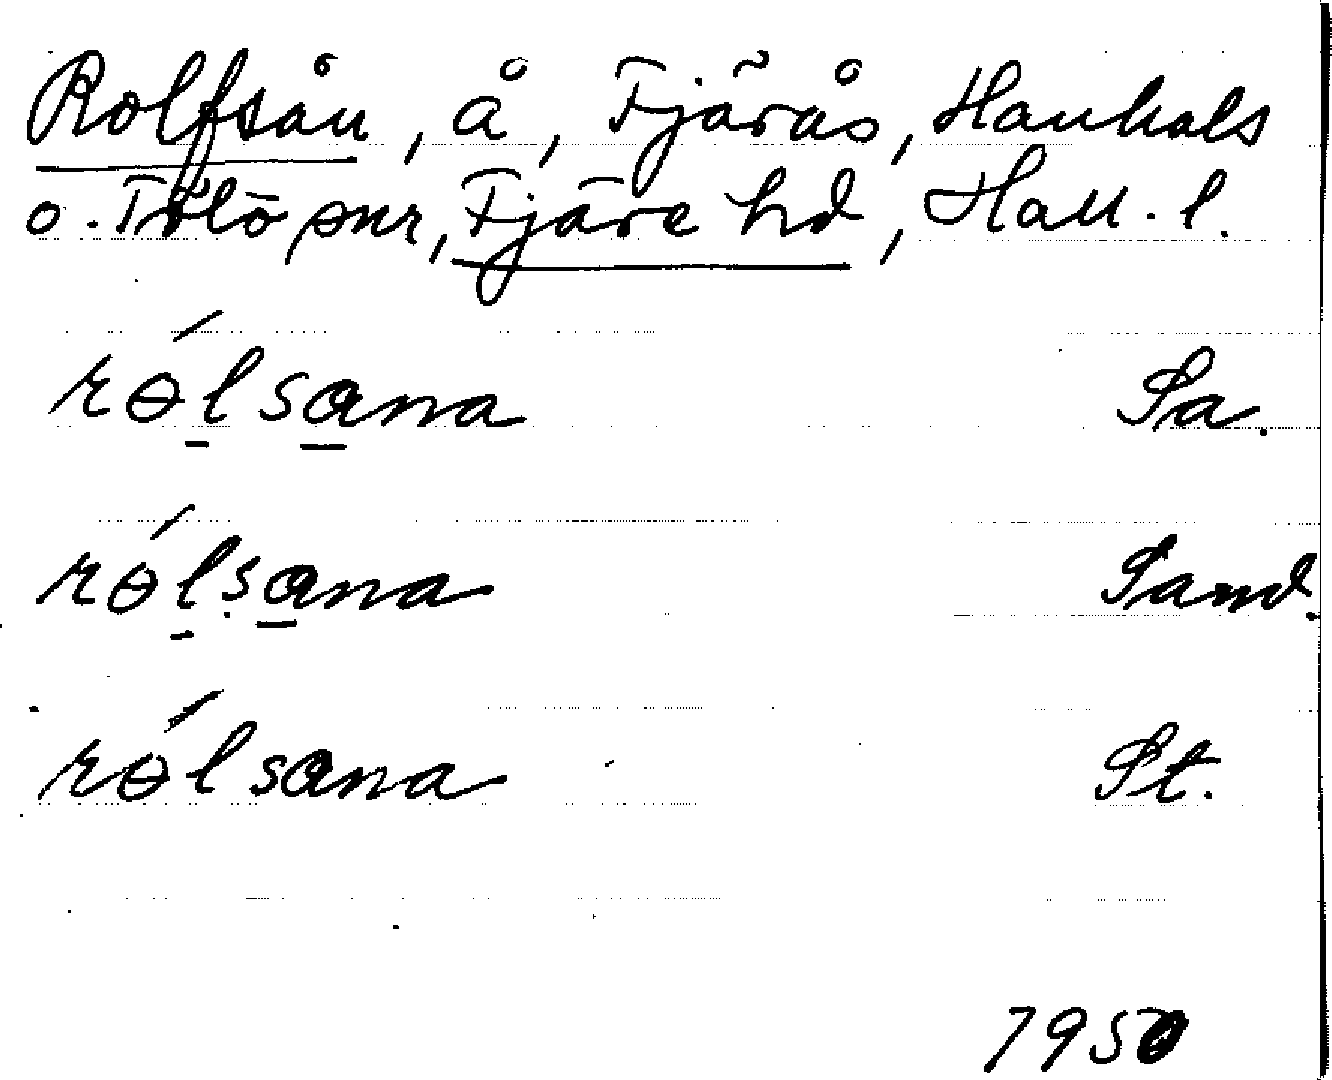 Rolfsån, å, Fjärås, Hanhals
o. Tölö snr, Fjäre hd, Hall. l.
rɵ́lsana Sa.
rɵ́lsana Sand.
rɵ́lsana St.
1950